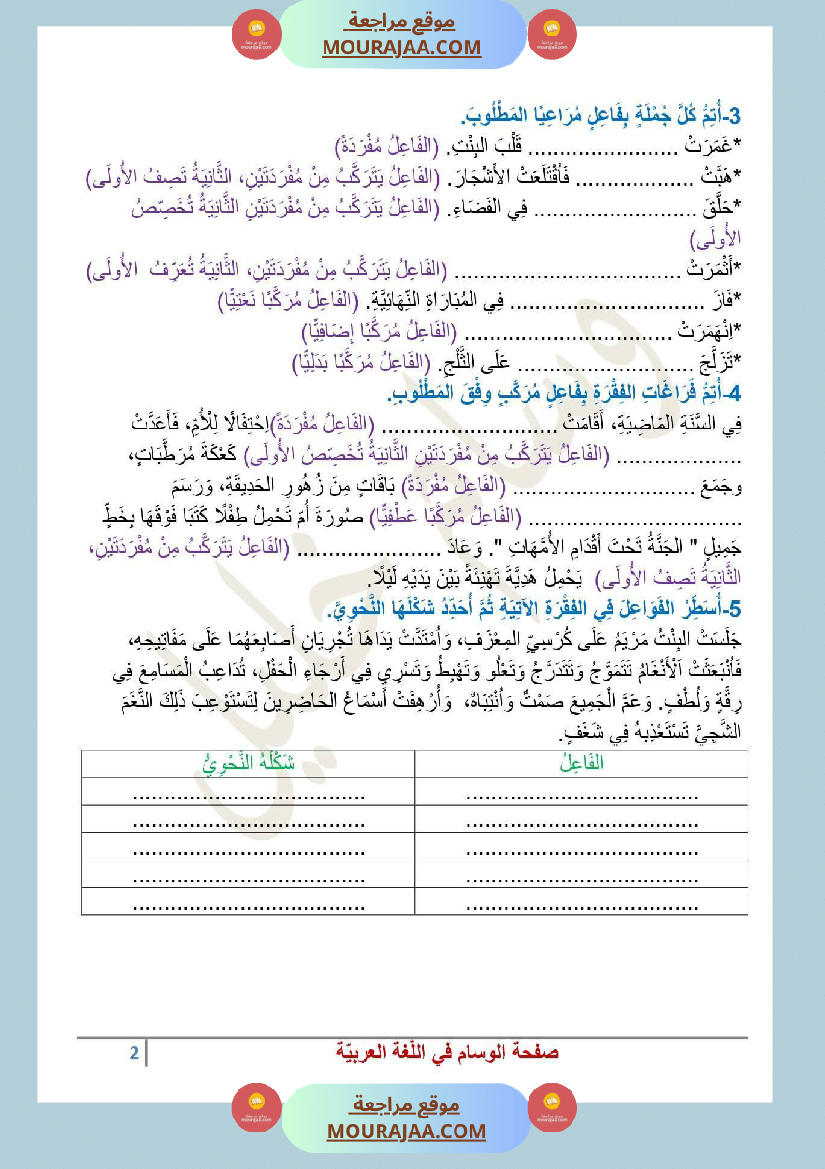 موقع مراجعة
MOURAJAA.COM
3-أُتِمُّ كُلَّ جُمْلَةٍ بِفَاعِلٍ مُرَاعِيًا المَطْلُوبَ.
*غَمَرَتْ ........................ قَلْبَ البِنْتِ. (الفَاعِلُ مُفْرَدَةٌ)
*هَبَّتْ ................... فَاُقْتَلَعَتْ الأَشْجَارَ. (الفَاعِلُ يَتَرَكَّبُ مِنْ مُفْرَدَتَيْنِ، الثَّانِيَةُ تَصِفُ الأُولَى)
*حَلَّقَ .......................... فِي الفَضَاءِ. (الفَاعِلُ يَتَرَكَّبُ مِنْ مُفْرَدَتَيْنِ الثَّانِيَةُ تُخَصِّصُ
الأُولَى)
*أَثْمَرَتْ .................................... (الفَاعِلُ يَتَرَكَّبُ مِنْ مُفْرَدَتَيْنِ، الثَّانِيَةُ تُعَرِّفُ الأُولَى)
*فَازَ ............................... فِي المُبَارَاةِ النِّهَائِيَّةِ. (الفَاعِلُ مُرَكَّبًا نَعْتِيًّا)
*اِنْهَمَرَتْ ................................. (الفَاعِلُ مُرَكَّبًا إِضَافِيًّا)
*تَزَلَّجَ ............................ عَلَى الثَّلْجِ. (الفَاعِلُ مُرَكَّبًا بَدَلِيًّا)
4-أُتِمُّ فَرَاغَاتِ الفِقْرَةِ بِفَاعِلٍ مُرَكَّبٍ وِفْقَ المَطْلُوبِ.
فِي السَّنَةِ المَاضِيَةِ، أَقَامَتْ ............................ (الفَاعِلُ مُفْرَدَةً)اِحْتِفَالًا لِلْأُمِّ، فَأَعَدَّتْ
.................... (الفَاعِلُ يَتَرَكَّبُ مِنْ مُفْرَدَتَيْنِ الثَّانِيَةُ تُخَصِّصُ الأُولَى) كَعْكَةَ مُرَطَّبَاتٍ،
وجَمَعَ ............................. (الفَاعِلُ مُفْرَدَةً) بَاقَاتٍ مِنَ زُهُورِ الحَدِيقَةِ، وَرَسَمَ
.................................. (الفَاعِلُ مُرَكَّبًا عَطْفِيًّا) صُورَةَ أُمّ تَحْمِلُ طِفْلًا كَتَبَا فَوْقَهَا بِخَطٍّ
جَمِيلٍ " الجَنَّةُ تَحْتَ أَقْدَامِ الأُمَّهَاتِ ". وَعَادَ ....................... (الفَاعِلُ يَتَرَكَّبُ مِنْ مُفْرَدَتَيْنِ،
الثَّانِيَةُ تَصِفُ الأُولَى) يَحْمِلُ هَدِيَّةَ تَهْنِئَةً بَيْنَ يَدَيْهِ لَيْلًا.
5-أُسَطِّرُ الفَوَاعِلَ فِي الفِقْرَةِ الآتِيَةِ ثُمَّ أُحَدِّدُ شَكْلَهَا النَّحْوِيَّ.
جَلَسَتْ البِنْتُ مَرْيَمُ عَلَى كُرْسِيِّ المِعْزَفِ، وَاُمْتَدَّتْ يَدَاهَا تُجْرِيَانِ أَصَابِعَهُمَا عَلَى مَفَاتِيحِهِ،
فَاُنْبَعَثَتْ اَلْأَنْغَامُ تَتَمَوَّجُ وَتَتَدَرَّجُ وَتَعْلُو وَتَهْبِطُ وَتَسْرِي فِي أَرْجَاءِ الْحَفْلِ، تُدَاعِبُ الْمَسَامِعَ فِي
رِقَّةٍ وَلُطْفٍ. وَعَمَّ الْجَمِيعَ صَمْتٌ وَاُنْتِبَاهٌ، وَأُرْهِفَتْ أَسْمَاعُ الحَاضِرِينَ لِتَسْتَوْعِبَ ذَلِكَ النَّغَمَ
الشَّجِيَّ تَسْتَعْذِبهُ فِي شَغَفٍ.
الفَاعِلُ شَكْلُهُ النَّحْوِيُّ
..................................... .....................................
..................................... .....................................
..................................... .....................................
..................................... .....................................
..................................... .....................................
صفحة الوسام في اللّغة العربيّة 2
موقع مراجعة
MOURAJAA.COM